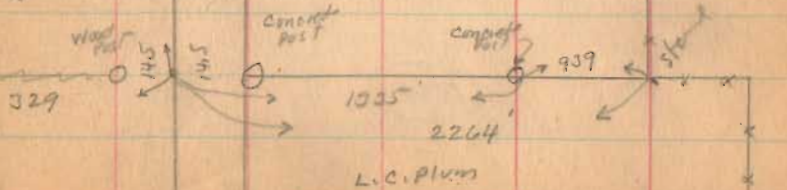 Wood Post
14.5
14.5
Concrete Post
Concrete Post
939
Stone
329
1335'
2264'
L.C. Plum